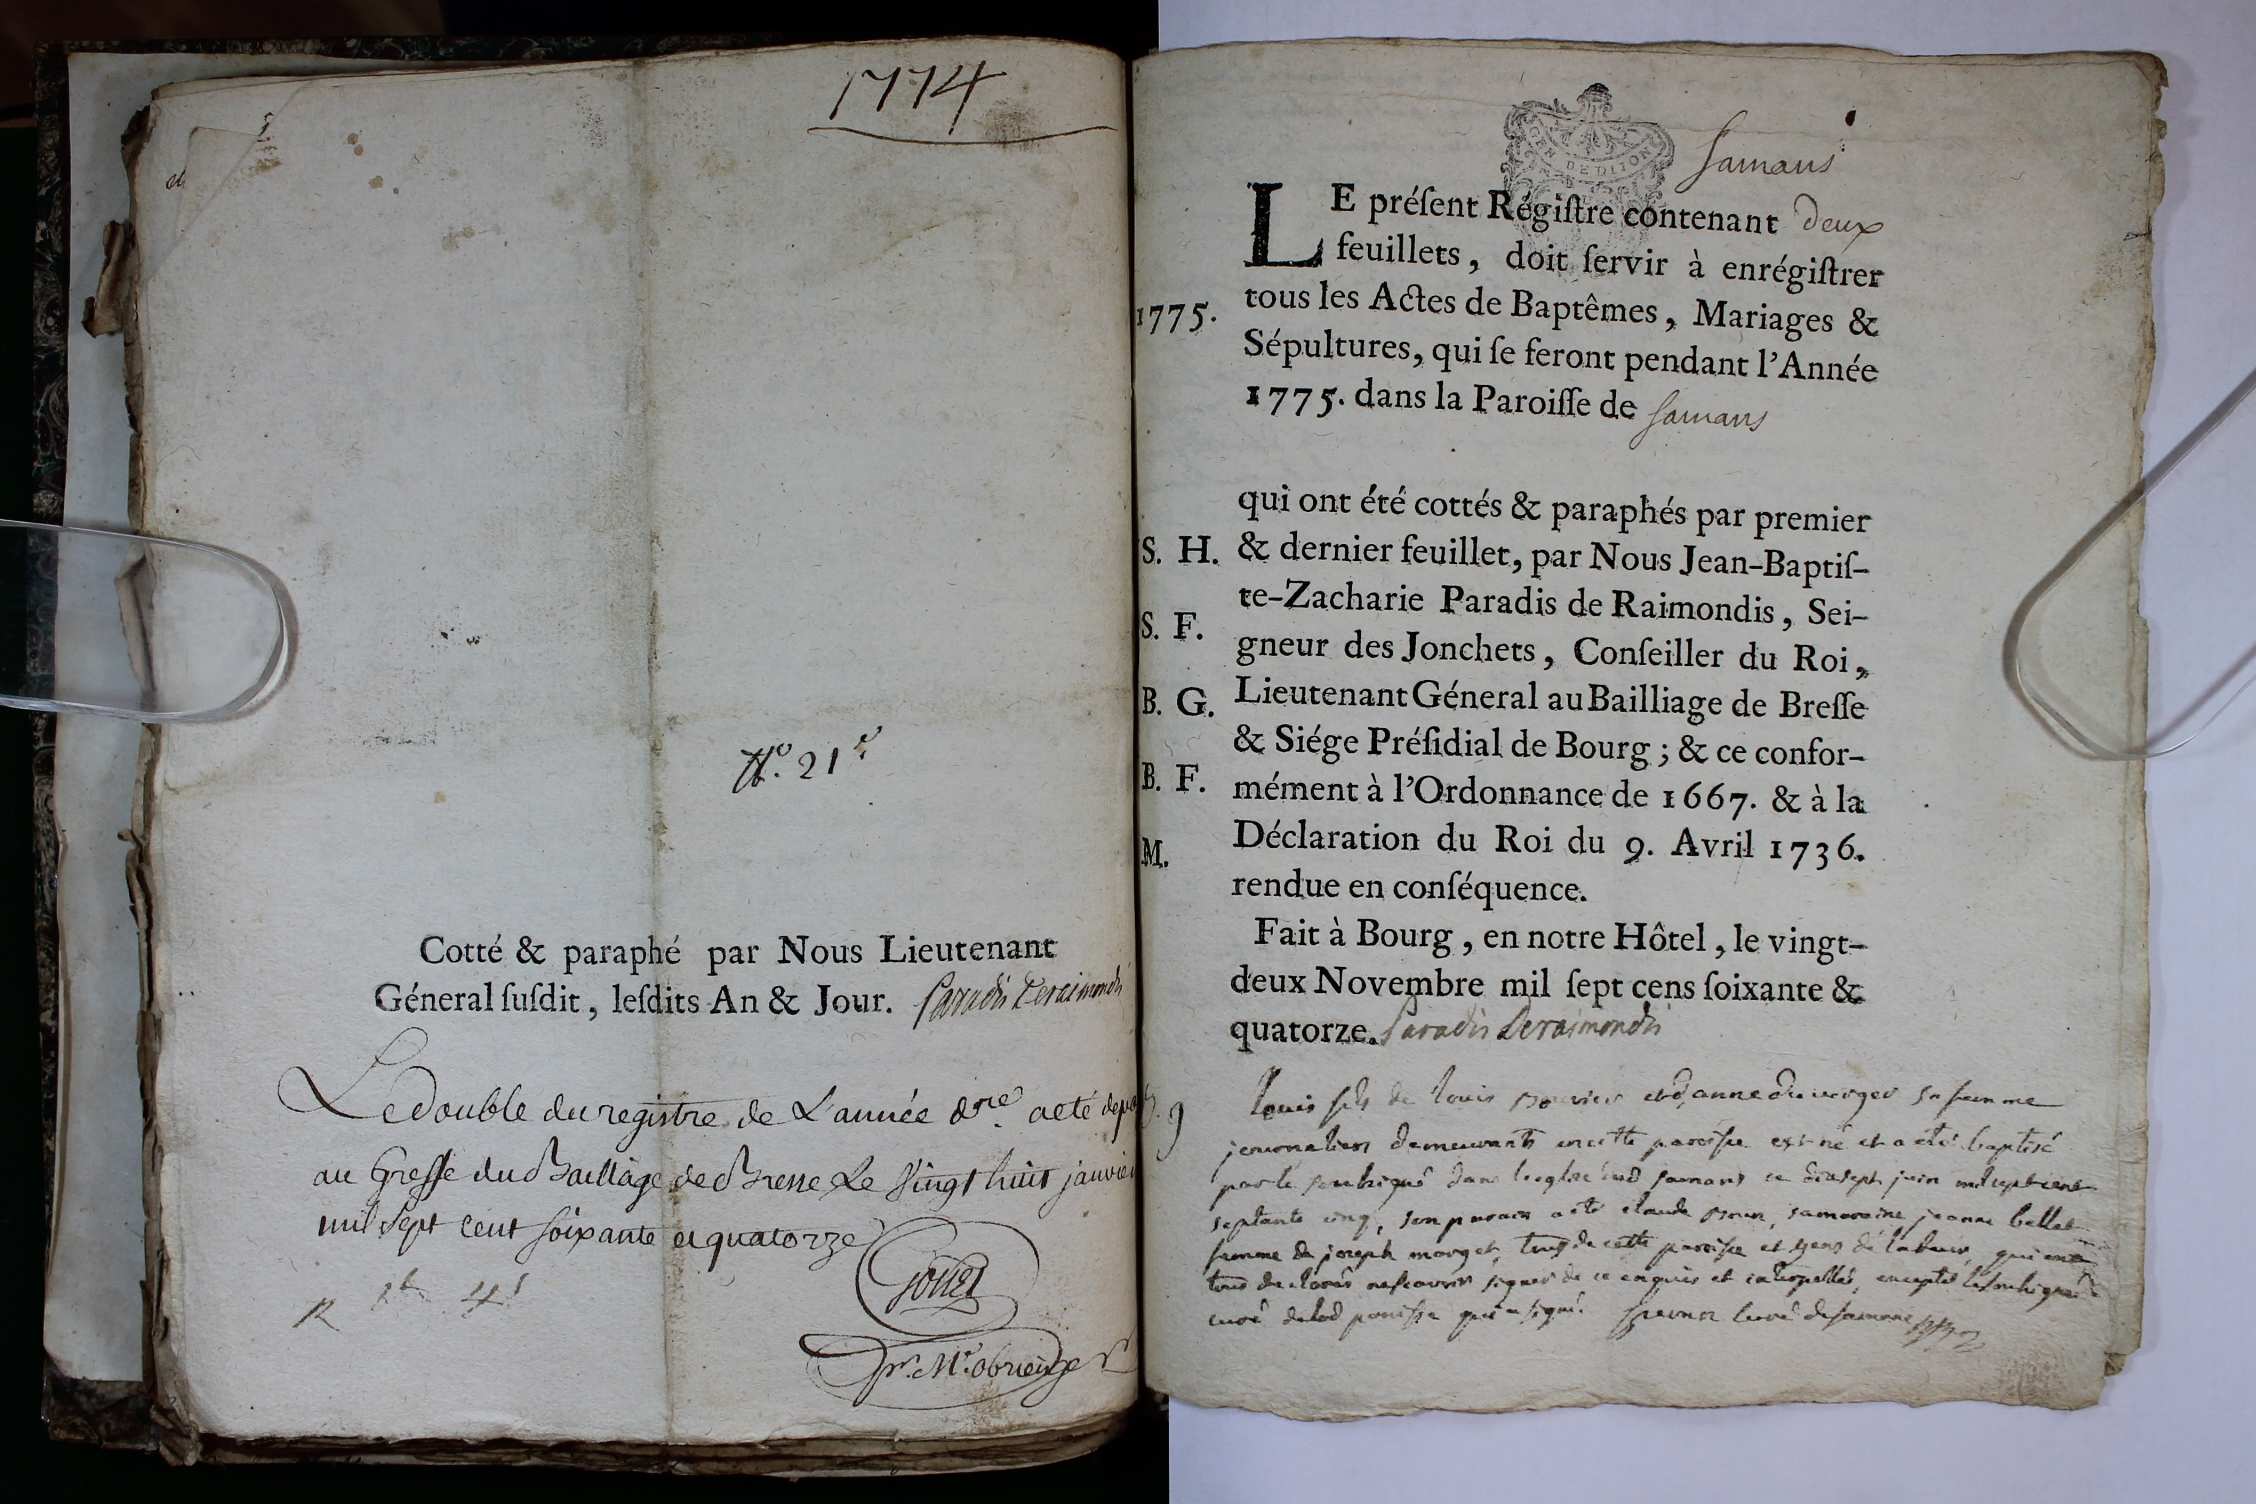 1774
No. 21e
Cotté & paraphé par Nous Lieutenant
Géneral ſuſdit, leſdits An & Jour. Paradis Deraimondis
Le double du registre de L'année dre. a eté depo
au Greffe du Bailliage de Bresse Le Vingt huit janvier
mil sept cent soixante et quatorze
R 4s
GEN DE DIJON
samans
LE préſent Régiſtre contenant deux
feuillets, doit ſervir à enrégiſtrer
tous les Actes de Baptêmes, Mariages &
1775.
Sépultures, qui ſe feront pendant l'Année
1775. dans la Paroiſſe de samans
qui ont été cottés & paraphés par premier
S. H.
& dernier feuillet, par Nous Jean-Baptiſ-
te-Zacharie Paradis de Raimondis, Sei-
S. F.
gneur des Jonchets, Conſeiller du Roi,
B. G.
Lieutenant Géneral au Bailliage de Breſſe
& Siége Préſidial de Bourg; & ce confor-
B. F.
mément à l'Ordonnance de 1667. & à la
Déclaration du Roi du 9. Avril 1736.
M.
rendue en conſéquence.
Fait à Bourg, en notre Hôtel, le vingt-
deux Novembre mil ſept cens ſoixante &
quatorze. Paradis Deraimondis
Louis fils de Louis et d'anne du verger sa femme
journaliers demeurants en cette paroisse est né et a été baptisé
par le soussigné dans l'eglise dud samans ce dixsept juin mil sept cent
septante cinq, son parain a été claude, sa maraine jeanne bellet
femme de joseph morget, tous de cette paroisse et gens de labeur, qui ont
tous declarés ne scavoir signer de ce enquis et interpellés, excepté le soussigné
curé de lad paroisse qui a signé. curé de samans